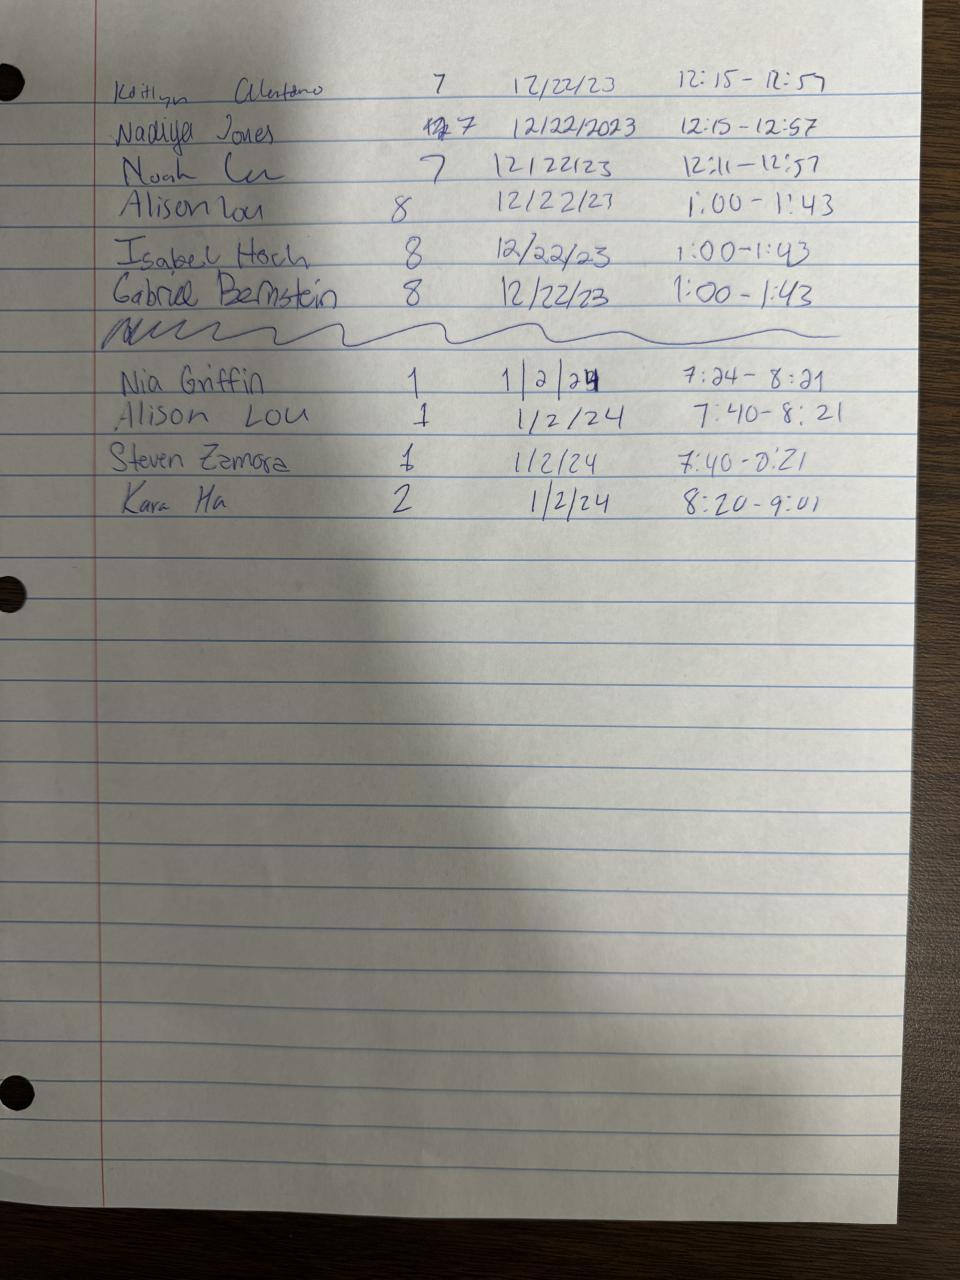 Kaitlyn 7 12/22/23 12:15-12:57
Nadiya Jones 7 12/22/2023 12:15-12:57
Noah 7 12/22/23 12:11-12:57
Alison Lou 8 12/22/23 1:00-1:43
Isabel Hoch 8 12/22/23 1:00-1:43
Gabriel Bernstein 8 12/22/23 1:00-1:43
Nia Griffin 1 1/2/24 7:24-8:21
Alison Lou 1 1/2/24 7:40-8:21
Steven Zamora 1 1/2/24 7:40-8:21
Kara Ha 2 1/2/24 8:20-9:01